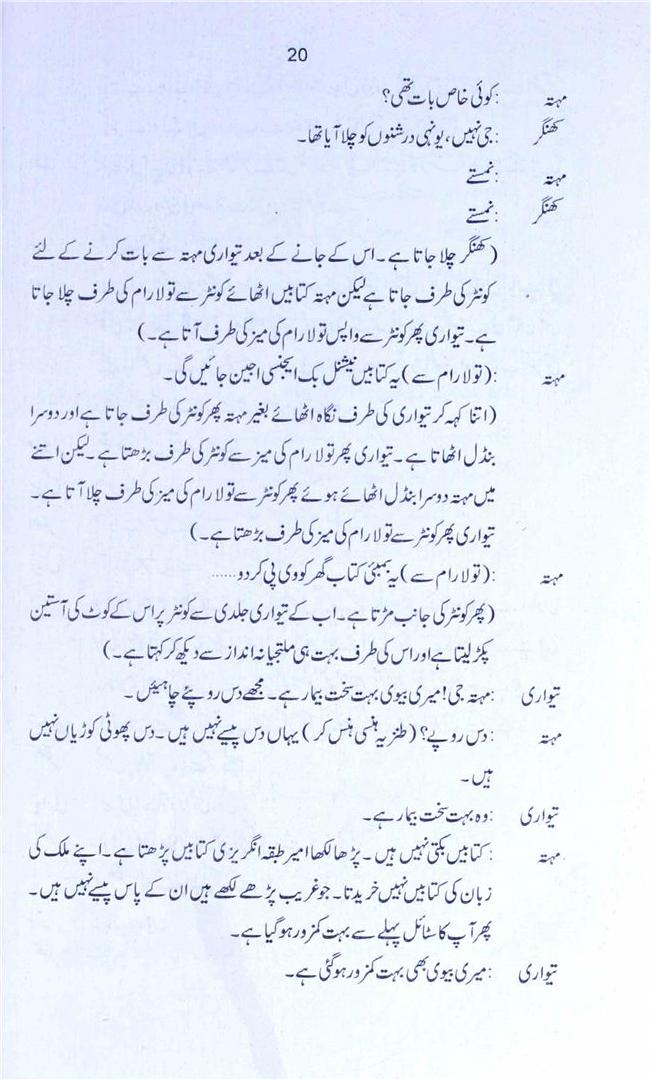 20
مہتہ :کوئی خاص بات تھی؟
کھنگر :جی نہیں، یونہی درشنوں کو چلا آیا تھا۔
مہتہ :نمستے
کھنگر :نمستے
( کھنگر چلا جاتا ہے۔ اس کے جانے کے بعد تیواری مہتہ سے بات کرنے کے لئے
کونٹر کی طرف جاتا ہے لیکن مہتہ کتابیں اٹھائے کونٹر سے تولارام کی طرف چلا جاتا
ہے۔ تیواری پھر کونٹر سے واپس تولارام کی میز کی طرف آتا ہے۔)
مہتہ :(تولارام سے) یہ کتابیں نیشنل بک ایجنسی اجین جائیں گی۔
(اتنا کہہ کر تیواری کی طرف نگاہ اٹھائے بغیر مہتہ پھر کونٹر کی طرف جاتا ہے اور دوسرا
بنڈل اٹھاتا ہے۔ تیواری پھر تولارام کی میز سے کونٹر کی طرف بڑھتا ہے۔ لیکن اتنے
میں مہتہ دوسرا بنڈل اٹھائے ہوئے پھر کونٹر سے تولارام کی میز کی طرف چلا آتا ہے۔
تیواری پھر کونٹر سے تولارام کی میز کی طرف بڑھتا ہے۔)
مہتہ :(تولارام سے) یہ بمبئی کتاب گھر کو وی پی کر دو......
(پھر کونٹر کی جانب مڑتا ہے۔ اب کے تیواری جلدی سے کونٹر پر اس کے کوٹ کی آستین
پکڑ لیتا ہے اور اس کی طرف بہت ہی ملتجیانہ انداز سے دیکھ کر کہتا ہے۔)
تیواری :مہتہ جی! میری بیوی بہت سخت بیمار ہے۔ مجھے دس روپئے چاہئیں۔
مہتہ :دس روپے؟ (طنزیہ ہنسی ہنس کر) یہاں دس پیسے نہیں ہیں۔ دس پھوٹی کوڑیاں نہیں
ہیں۔
تیواری :وہ بہت سخت بیمار ہے۔
مہتہ :کتابیں بکتی نہیں ہیں۔ پڑھا لکھا امیر طبقہ انگریزی کتابیں پڑھتا ہے۔ اپنے ملک کی
زبان کی کتابیں نہیں خریدتا۔ جو غریب پڑھے لکھے ہیں ان کے پاس پیسے نہیں ہیں۔
پھر آپ کا سٹائل پہلے سے بہت کمزور ہو گیا ہے۔
تیواری :میری بیوی بھی بہت کمزور ہو گئی ہے۔